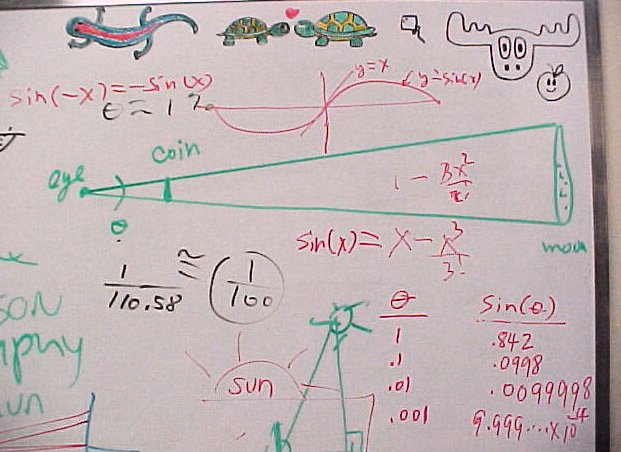 sin(-x)=-sin(x)
y=x
y=sin(x)
θ≈1%
coin
eye
θ
1 - 3x²/2!
sin(x)=x-x³/3!
moon
1/110.58 ≈ 1/100
SON
θ Sin(θ)
1 .842
.1 .0998
.01 .0099998
.001 9.999...x10⁻⁴
sun